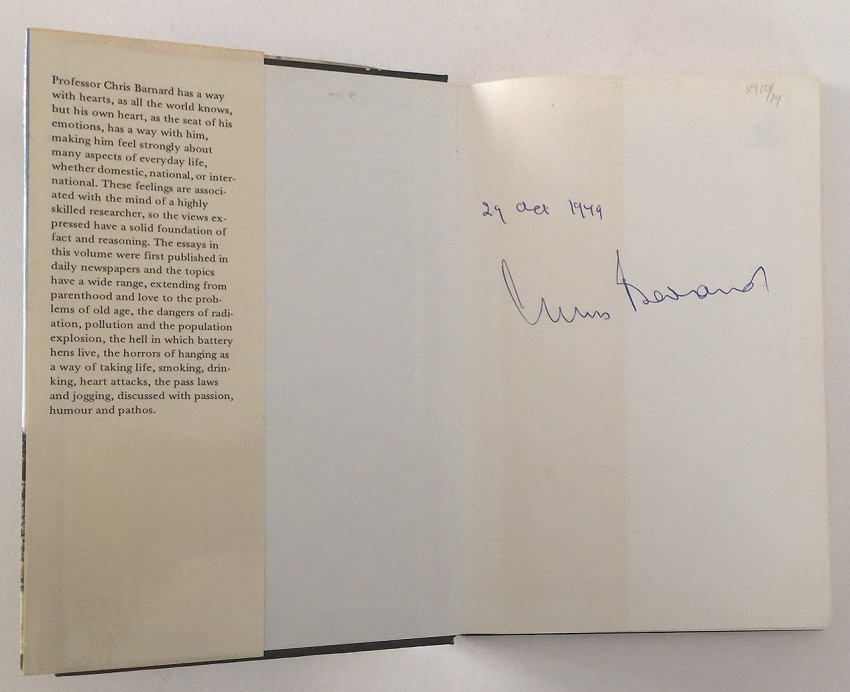 Professor Chris Barnard has a way
with hearts, as all the world knows,
but his own heart, as the seat of his
emotions, has a way with him,
making him feel strongly about
many aspects of everyday life,
whether domestic, national, or inter-
national. These feelings are associ-
ated with the mind of a highly
skilled researcher, so the views ex-
pressed have a solid foundation of
fact and reasoning. The essays in
this volume were first published in
daily newspapers and the topics
have a wide range, extending from
parenthood and love to the prob-
lems of old age, the dangers of radi-
ation, pollution and the population
explosion, the hell in which battery
hens live, the horrors of hanging as
a way of taking life, smoking, drin-
king, heart attacks, the pass laws
and jogging, discussed with passion,
humour and pathos.
29 Oct 1979
Chris Barnard